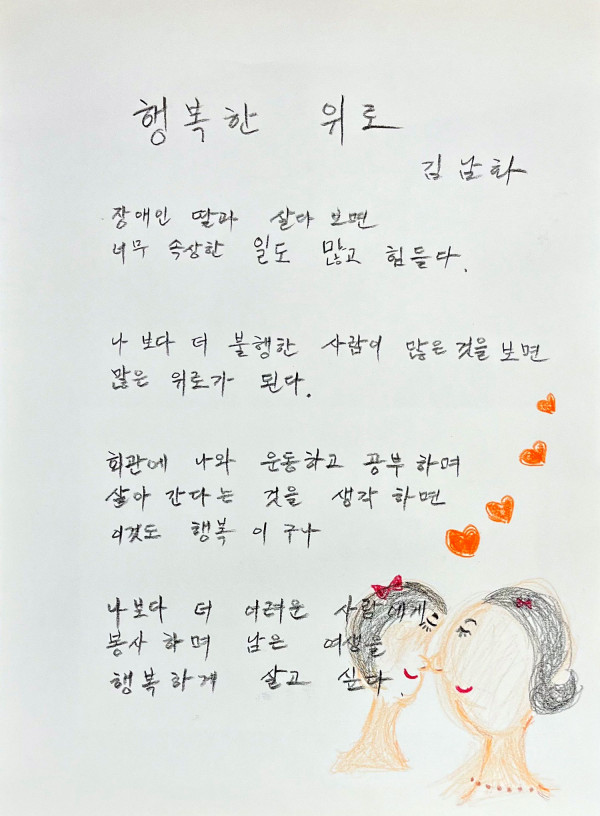 행복한 위로
김남화
장애인 딸과 살다 보면
너무 속상한 일도 많고 힘들다.
나 보다 더 불행한 사람이 많은 것을 보면
많은 위로가 된다.
회관에 나와 운동하고 공부 하며
살아 간다는 것을 생각 하면
이것도 행복 이 구나
나보다 더 어려운 사람에게
봉사 하며 남은 여생을
행복하게 살고 싶다.